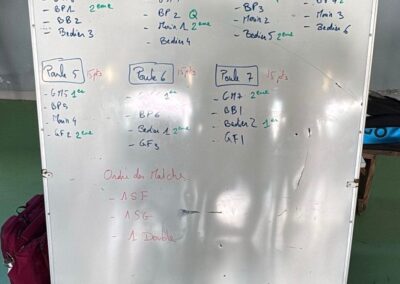 - BP1 2eme
- BB2
- Bedier 3
- BP2 Q
- Main 1 2eme
- Bedier 4
- BP3
- Main 2
- Bedier 5 2eme
- Main 3
- Bedier 6
Poule 5 15pts
- GM5 1er
- BP5
- Main 4
- GF2 2eme
Poule 6 15pts
1er
- BP6
- Bedier 1 2eme
- GF3
Poule 7 15pts
- GM7 2eme
- BB1
- Bedier 2 1er
- GF1
Ordre des Matchs
- 1 SF
- 1 SG
- 1 Double